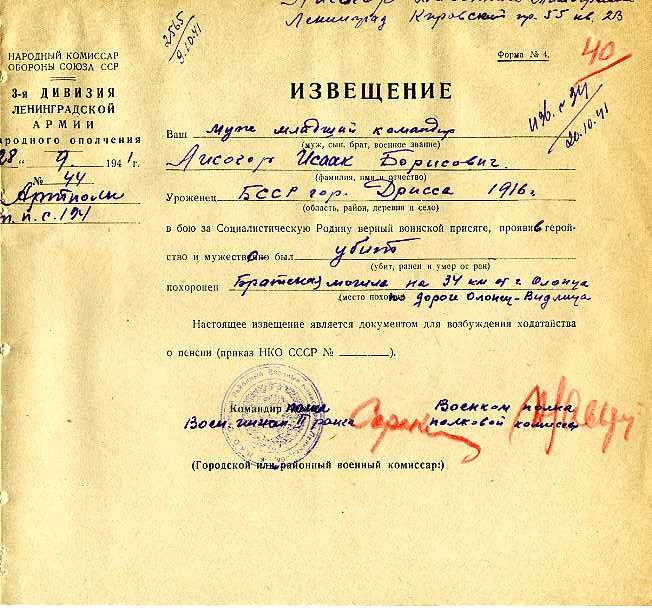 Ленинград Кировский пр. 55 кв. 23
2565
9.10.41
НАРОДНЫЙ КОМИССАР
ОБОРОНЫ СОЮЗА ССР
3-я ДИВИЗИЯ
ЛЕНИНГРАДСКОЙ
АРМИИ
народного ополчения
28 " 9. 1941 г.
№ 44
Артполк
п.п.с. 191
Форма № 4.
40
20.10.41
ИЗВЕЩЕНИЕ
Ваш муж младший командир
(муж, сын, брат, военное звание)
Лисогор Исаак Борисович.
(фамилия, имя и отчество)
Уроженец БССР гор. Дрисса 1916 г.
(область, район, деревня и село)
в бою за Социалистическую Родину верный воинской присяге, проявив герой-
ство и мужество был убит
(убит, ранен и умер от ран)
похоронен Братская могила на 34 км от г. Олонца
(место похорон) по дороге Олонец-Видлица
Настоящее извещение является документом для возбуждения ходатайства
о пенсии (приказ НКО СССР № ).
Командир полка Военком полка
Воен. инжен. II ранга полковой комиссар
(Городской или районный военный комиссар:)